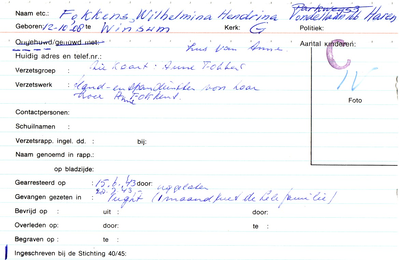 Parkweg 53
Naam etc.: Fokkens, Wilhelmina Hendrina Haren
Geboren: 12-10-'08 te Winsum Kerk: G Politiek:
Ongehuwd/gehuwd met: Zus van Anne Aantal kinderen:
Huidig adres en telef.nr.: C
Verzetsgroep : Zie kaart: Anne Fokkens
Verzetswerk : Hand- en spandiensten voor haar
broer Anne Fokkens.
Foto
Contactpersonen:
Schuilnaam :
Verzetsrapp. ingel. dd. : bij:
Naam genoemd in rapp.:
op bladzijde:
Gearresteerd op : 15.6.'43 door:
Gevangen gezeten in : Vught (1 maand met de hele familie)
Bevrijd op : uit : door:
Overleden op : door: te :
Begraven op : te :
Ingeschreven bij de Stichting 40/45: